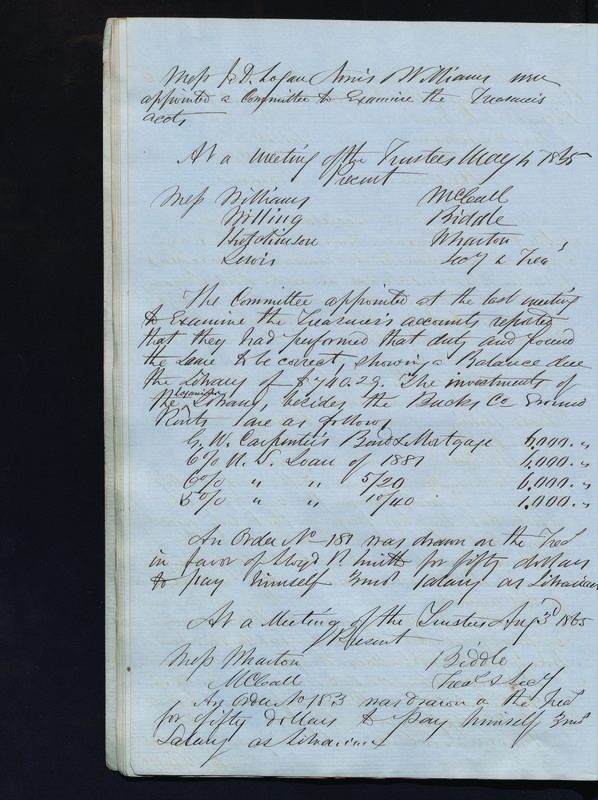 Mess J. D. Logan Annis & Williams were
appointed a Committee to Examine the Treasurers
accts
At a meeting of the Trustees May 4 1865
Present
Mess Williams McCall
Willing Biddle
Hutchinson Wharton
Lewis Secy & Treas
The Committee appointed at the last meeting
to Examine the Treasurer's accounts reported
that they had performed that duty and found
the same to be correct, showing a Balance due
the Library of $740.29. The investments of
the Loganian Library, besides the Bucks Co Ground
Rents are as follows
G. W. Carpenter's Bond & Mortgage 6,000.,,
6 % U. S. Loan of 1881 1,000.,,
6 % ,, ,, 5/20 6,000.,,
5 % ,, ,, 10/40 1,000.,,
An Order No 181 was drawn on the Treas
in favor of Lloyd P. Smith for fifty dollars
to pay himself 3 mos salary as Librarian
At a Meeting of the Trustees Aug 3d 1865
Present
Mess Wharton Biddle
McCall Treas & Secy
An Order No 183 was drawn on the Treas
for fifty dollars to pay himself 3 mos
Salary as Librarian